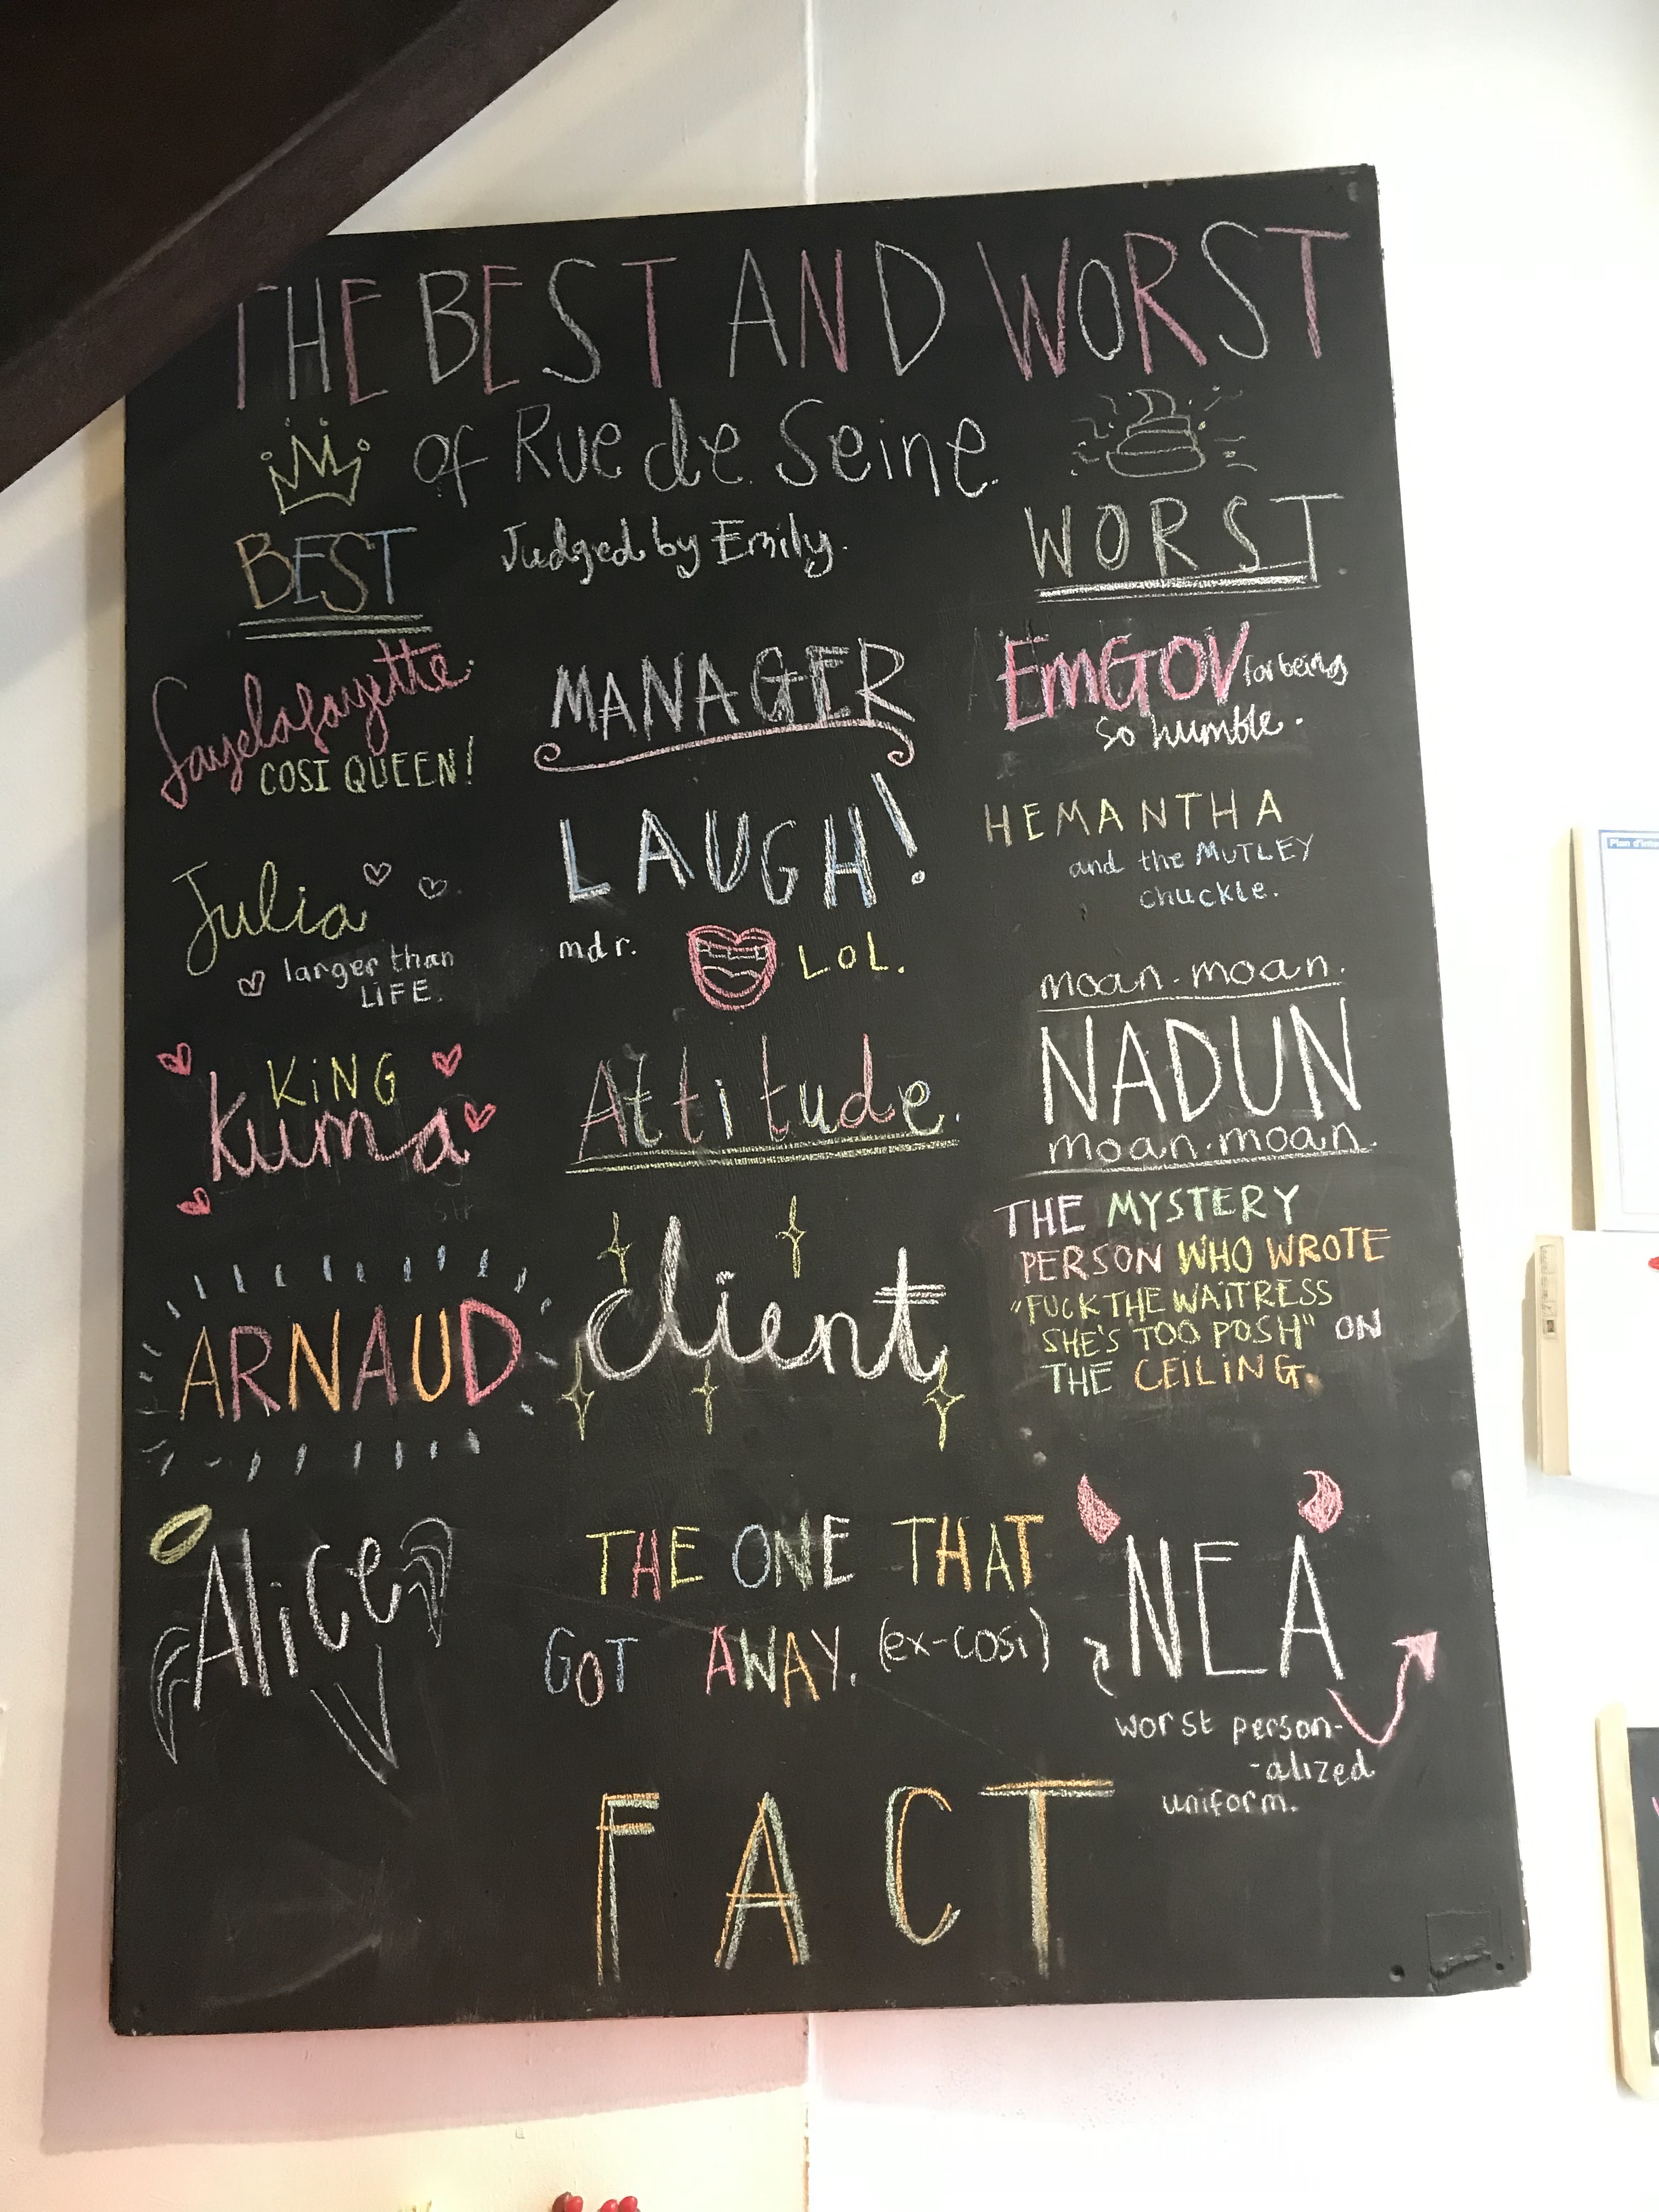 THE BEST AND WORST
of Rue de Seine.
Judged by Emily.
BEST
WORST
fayelafayette
COSI QUEEN!
MANAGER
EmGOV for being
so humble.
Julia
larger than
LIFE.
LAUGH!
mdr.
LOL.
HEMANTHA
and the MUTLEY
chuckle.
KING
Kuma
Attitude.
moan.moan.
NADUN
moan.moan.
ARNAUD
client
THE MYSTERY
PERSON WHO WROTE
"FUCK THE WAITRESS
SHE'S TOO POSH" ON
THE CEILING.
Alice
THE ONE THAT
GOT AWAY. (ex-cosi)
NEA
worst person-
-alized
uniform.
FACT